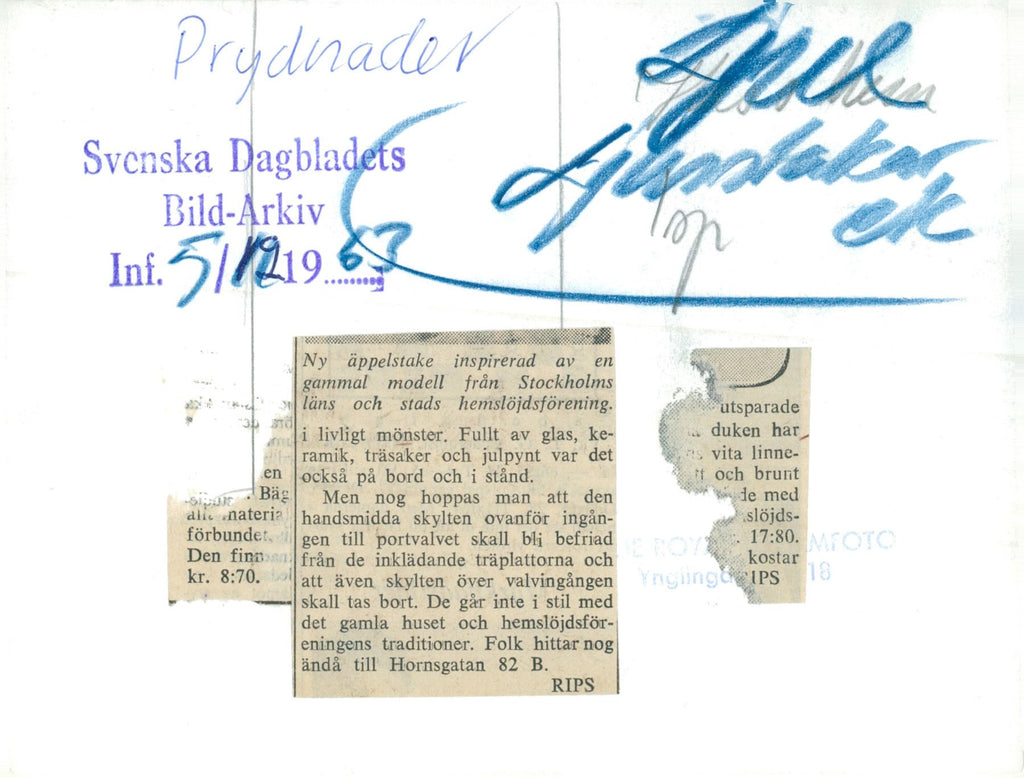 Prydnader
Jul
Ljusstakar
ek
Svenska Dagbladets
Bild-Arkiv
Inf. 5/12 1963
Ny äppelstake inspirerad av en
gammal modell från Stockholms
läns och stads hemslöjdsförening.
i livligt mönster. Fullt av glas, ke-
ramik, träsaker och julpynt var det
också på bord och i stånd.
Men nog hoppas man att den
handsmidda skylten ovanför ingån-
gen till portvalvet skall bli befriad
från de inklädande träplattorna och
att även skylten över valvingången
skall tas bort. De går inte i stil med
det gamla huset och hemslöjdsför-
eningens traditioner. Folk hittar nog
ändå till Hornsgatan 82 B.
RIPS
en
Bäg
materia
förbundet.
Den finn
kr. 8:70.
utsparade
duken har
vita linne-
och brunt
de med
slöjds-
17:80.
kostar
RIPS